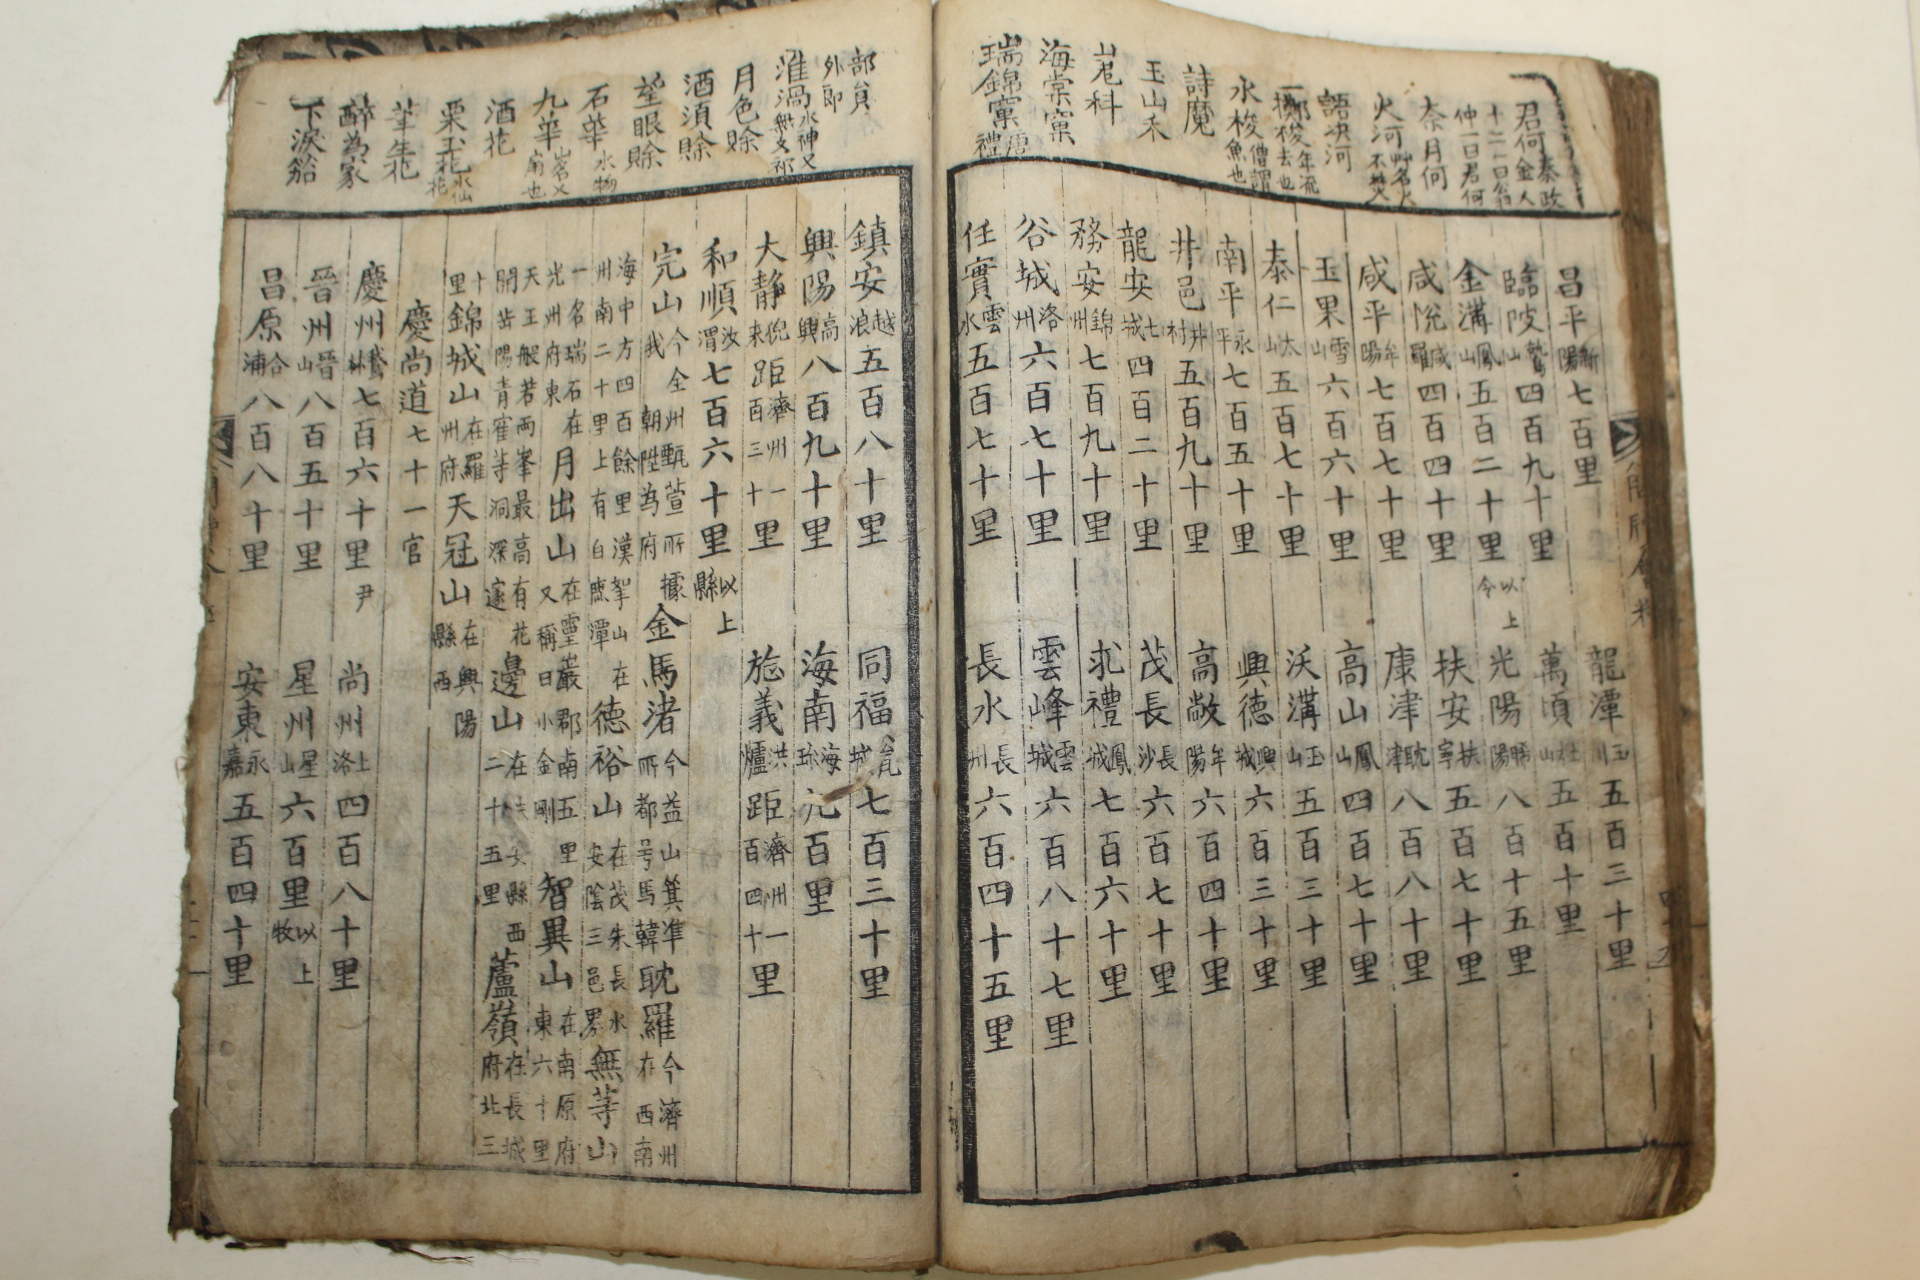 君何秦政金人
十二一曰翁仲一曰君何
奈月何
火河艸名火不焚
語决河
一擲梭年流去也
水梭僧謂魚也
詩魔
玉山禾
嵬科
海棠窠
瑞錦窠唐禮
昌平新陽七百里
龍潭玉川五百三十里
臨陂鷲山四百九十里
萬頃杜山五百十里
金溝鳳山五百二十里以上令
光陽晞陽八百十五里
咸悅咸羅四百四十里
扶安扶寧五百七十里
咸平牟陽七百七十里
康津耽津八百八十里
玉果雪山六百六十里
高山鳳山四百七十里
泰仁太山五百七十里
沃溝玉山五百三十里
南平永平七百五十里
興德興城六百三十里
井邑井村五百九十里
高敞牟陽六百四十里
龍安七城四百二十里
茂長長沙六百七十里
務安錦州七百九十里
求禮鳳城七百六十里
谷城洛州六百七十里
雲峰雲城六百八十七里
任實雲水五百七十里
長水長州六百四十五里
部員外郎
淮渦水神又無支祁
月色賒
酒須賒
望眼賒
石華水物
九華山名又扇也
酒花
栗玉花水仙花
筆生花
醉為家
下淚
鎮安越浪五百八十里
同福瓮城七百三十里
興陽高興八百九十里
海南海珎九百里
大静猊来距濟州一百三十里
旌義洪爐距濟州一百四十里
和順汝湄七百六十里以上縣
完山今全州甄萱所據我朝陞為府
金馬渚今益山箕準所都号馬韓
耽羅在今濟州西南
海中方四百餘里漢拏山在州南二十里上有白鹿潭
德裕山在茂朱長水安陰三邑界
無䓁山
一名瑞石在光州府東
月出山在靈巖郡南五里又稱曰小金剛
智異山在南原府東六十里
天王般若兩峯最高有花開岳陽青崔等洞深邃
邊山在扶安縣西二十五里
蘆嶺在長城府北三
十里
錦城山在羅州府
天冠山在興陽縣西
慶尚道七十一官
慶州鷄林七百六十里尹
尚州上洛四百八十里
晉州晉山八百五十里
星州星山六百里以上牧
昌原合浦八百八十里
安東永嘉五百四十里